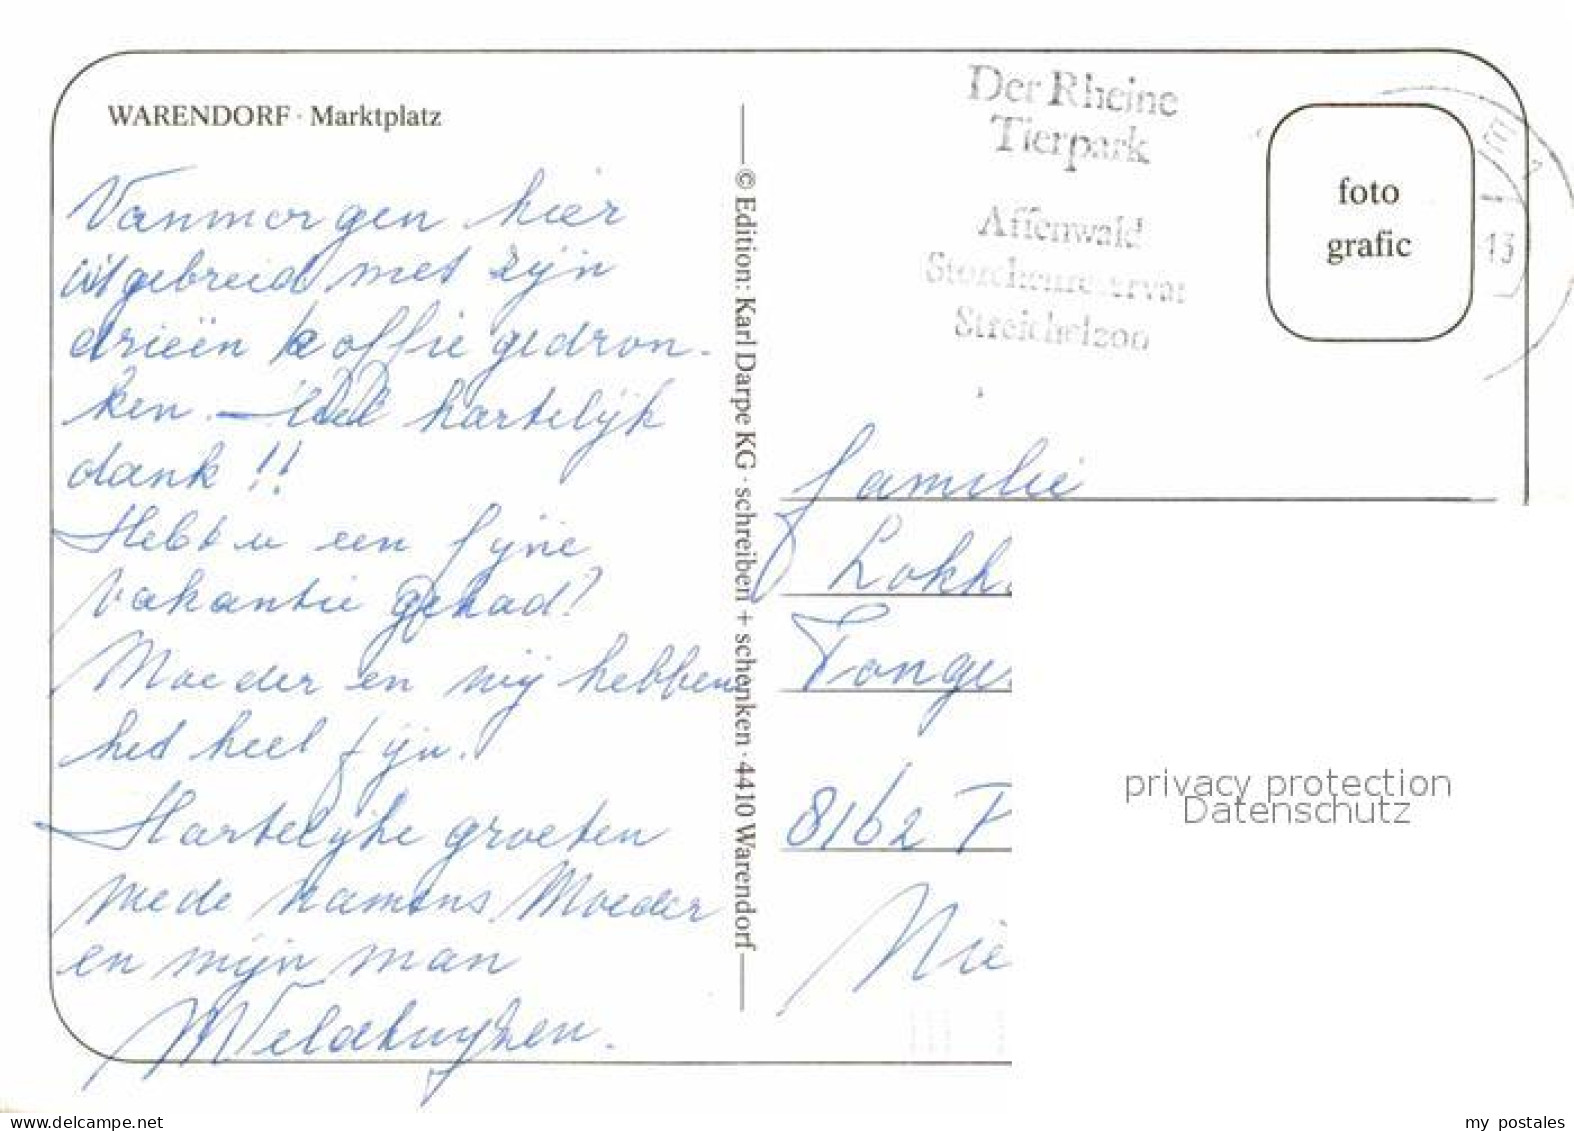 WARENDORF · Marktplatz
Vanmorgen hier
uitgebreid met zijn
drieën koffie gedron-
ken. — Wel hartelijk
dank !!
Hebt u een fijne
vakantie gehad?
Moeder en wij hebben
het heel fijn.
Hartelijke groeten
mede namens Moeder
en mijn man
© Edition: Karl Darpe KG · schreiben + schenken · 4410 Warendorf
Der Rheine
Tierpark
Affenwald
Storchenreservat
Streichelzoo
foto
grafic
13
familie
Lokh
Tonge
8162 P
Nie
privacy protection
Datenschutz
delcampe.net
my postales